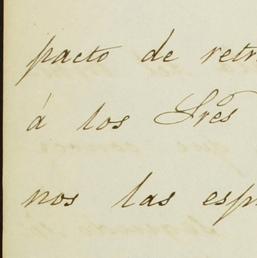 pacto de retr
á los Sres
nos las esp